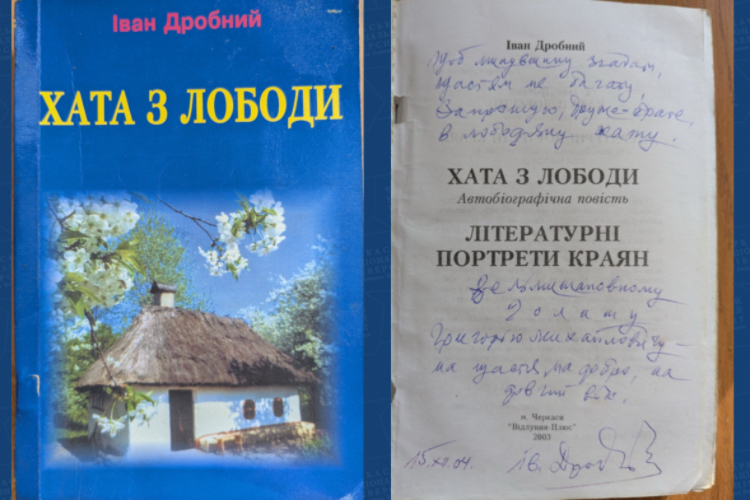 Іван Дробний
ХАТА З ЛОБОДИ
Іван Дробний
Щоб минувшину згадать,
щастям не багату,
Запрошую, друже-брате,
в лободяну хату.
ХАТА З ЛОБОДИ
Автобіографічна повість
ЛІТЕРАТУРНІ
ПОРТРЕТИ КРАЯН
Вельмишановному
Голишу
Григорію Михайловичу –
на щастя, на добро, на
довгий вік.
м. Черкаси
"Відлуння-Плюс"
2003
15.XII.04. Ів. Дроб